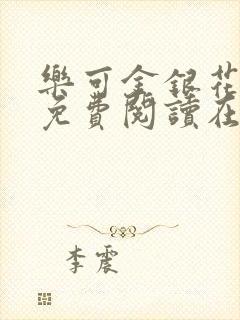 樂可金銀花
免費閱讀在
李震